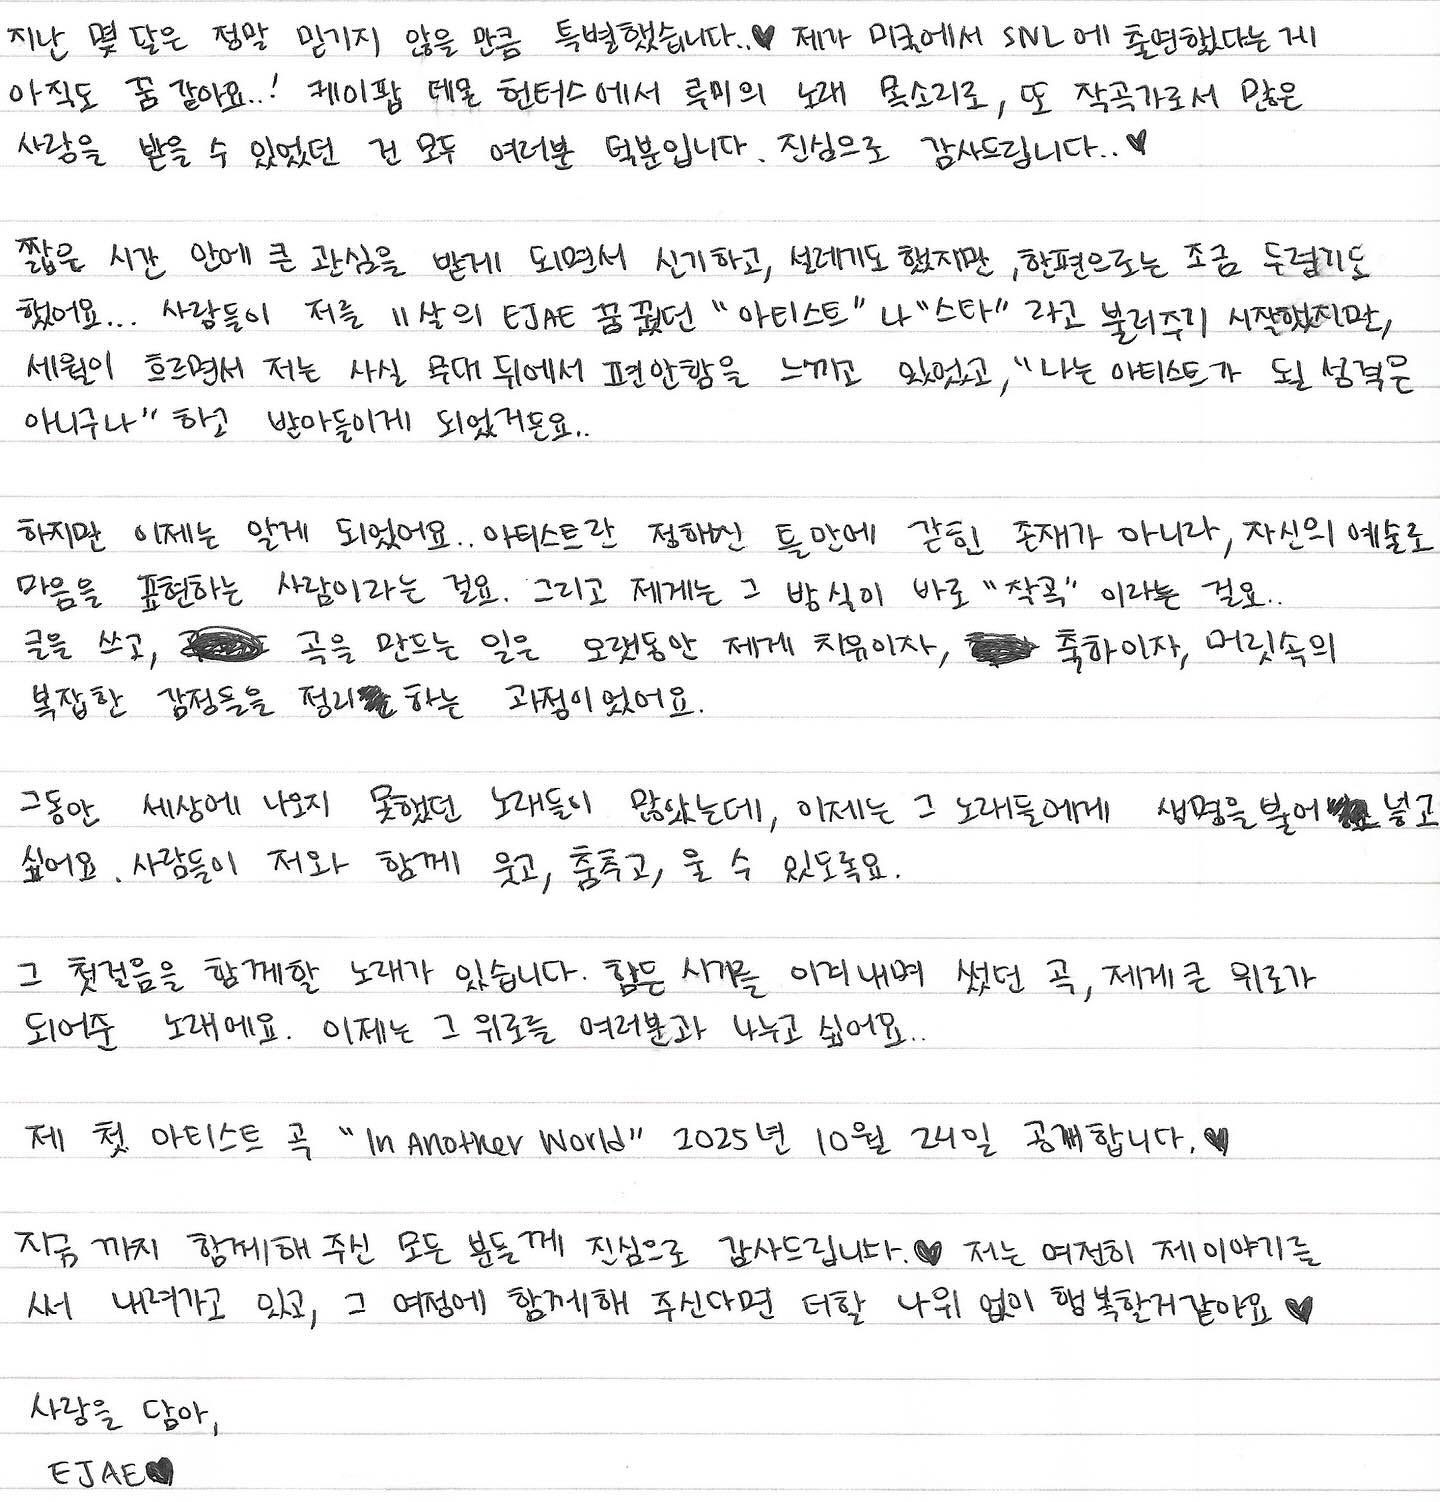 지난 몇 달은 정말 믿기지 않을 만큼 특별했습니다..♥ 제가 미국에서 SNL에 출연했다는게
아직도 꿈 같아요..! 케이팝 데몬 헌터스에서 루미의 노래 목소리로, 또 작곡가로서 많은
사랑을 받을 수 있었던 건 모두 여러분 덕분입니다. 진심으로 감사드립니다..♥
짧은 시간 안에 큰 관심을 받게 되면서 신기하고, 설레기도 했지만, 한편으로는 조금 두렵기도
했어요... 사람들이 저를 11살의 EJAE 꿈꿨던 "아티스트" 나 "스타" 라고 불러주기 시작했지만,
세월이 흐르면서 저는 사실 무대 뒤에서 편안함을 느끼고 있었고, "나는 아티스트가 될 성격은
아니구나" 하고 받아들이게 되었거든요..
하지만 이제는 알게 되었어요.. 아티스트란 정해진 틀안에 갇힌 존재가 아니라, 자신의 예술로
마음을 표현하는 사람이라는 걸요. 그리고 제게는 그 방식이 바로 "작곡" 이라는 걸요..
글을 쓰고, 곡을 만드는 일은 오랫동안 제게 치유이자, 축하이자, 머릿속의
복잡한 감정들을 정리하는 과정이었어요.
그동안 세상에 나오지 못했던 노래들이 많았는데, 이제는 그 노래들에게 생명을 불어 넣고
싶어요. 사람들이 저와 함께 웃고, 춤추고, 울 수 있도록요.
그 첫걸음을 함께할 노래가 있습니다. 힘든 시기를 이겨내며 썼던 곡, 제게 큰 위로가
되어준 노래예요. 이제는 그 위로를 여러분과 나누고 싶어요..
제 첫 아티스트 곡 "In Another World" 2025년 10월 24일 공개합니다.♥
지금 까지 함께해 주신 모든 분들께 진심으로 감사드립니다.♥ 저는 여전히 제 이야기를
써 내려가고 있고, 그 여정에 함께해 주신다면 더할 나위 없이 행복할거같아요 ♥
사랑을 담아,
EJAE♥